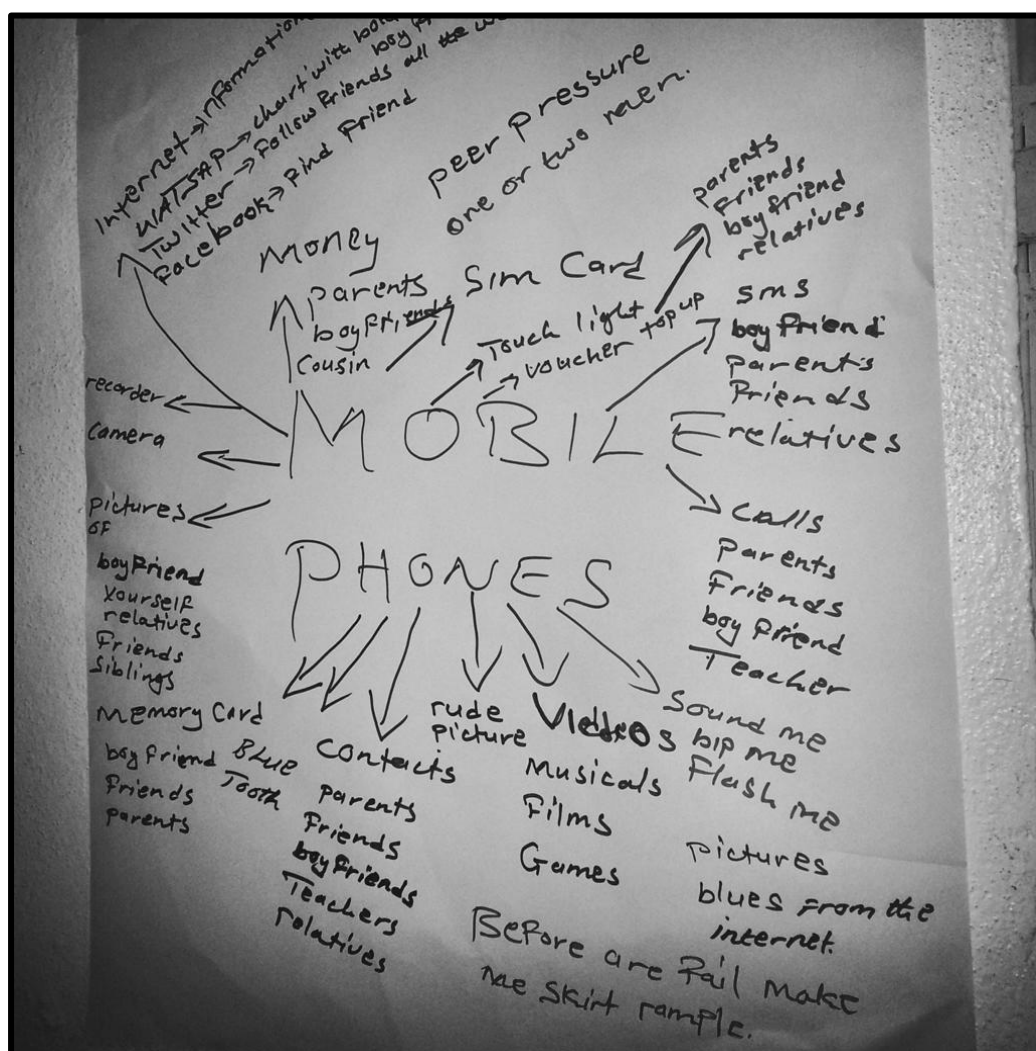 Internet → information
WATSAP → chart with
boy
Twitter → Follow Friends all the
Facebook → Find Friend
peer pressure
one or two men.
Money
parents
boyfriends
Cousin
Sim Card
Touch light
voucher top up
parents
Friends
boyfriend
relatives
sms
boyfriend
parents
Friends
relatives
recorder
camera
pictures
of
boyfriend
Yourself
relatives
Friends
Siblings
MOBILE
PHONES
calls
parents
Friends
boyfriend
Teacher
Memory Card
boyfriend
Friends
parents
BLUE
Tooth
contacts
parents
Friends
boyfriends
Teachers
relatives
rude
picture
Videos
Musicals
Films
Games
Sound me
bip me
Flash me
pictures
blues from the
internet.
Before are Fail make
me skirt rample.